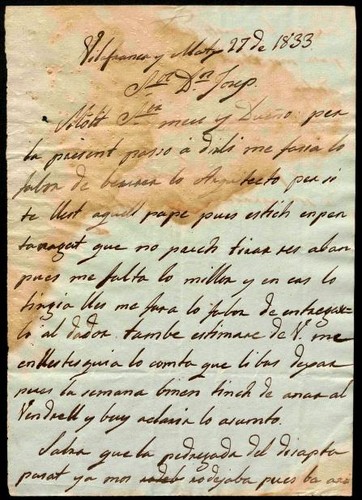 Vilafranca y Matx 27 de 1833
Sor. Dn. Josep.
Molt Sor. meu y Dueño: per
la present passo á dirli me fasia lo
fabor de beurer lo Arquitecto per si
te llest aquell pape pues estich enpan
tanagat que no puch tirar res aban
pues me falta lo millor y en cas lo
tingia lles me fara lo fabor de entregar
lo al dador. tambe estimare de V. me
enllestesquia lo conta que li bas dexar
pues la semana binen tinch de anar al
Vendrell y buy aclarir lo asunto.
Sabra que la pedregada del disapta
pasat ya mos rodejaba pues ba